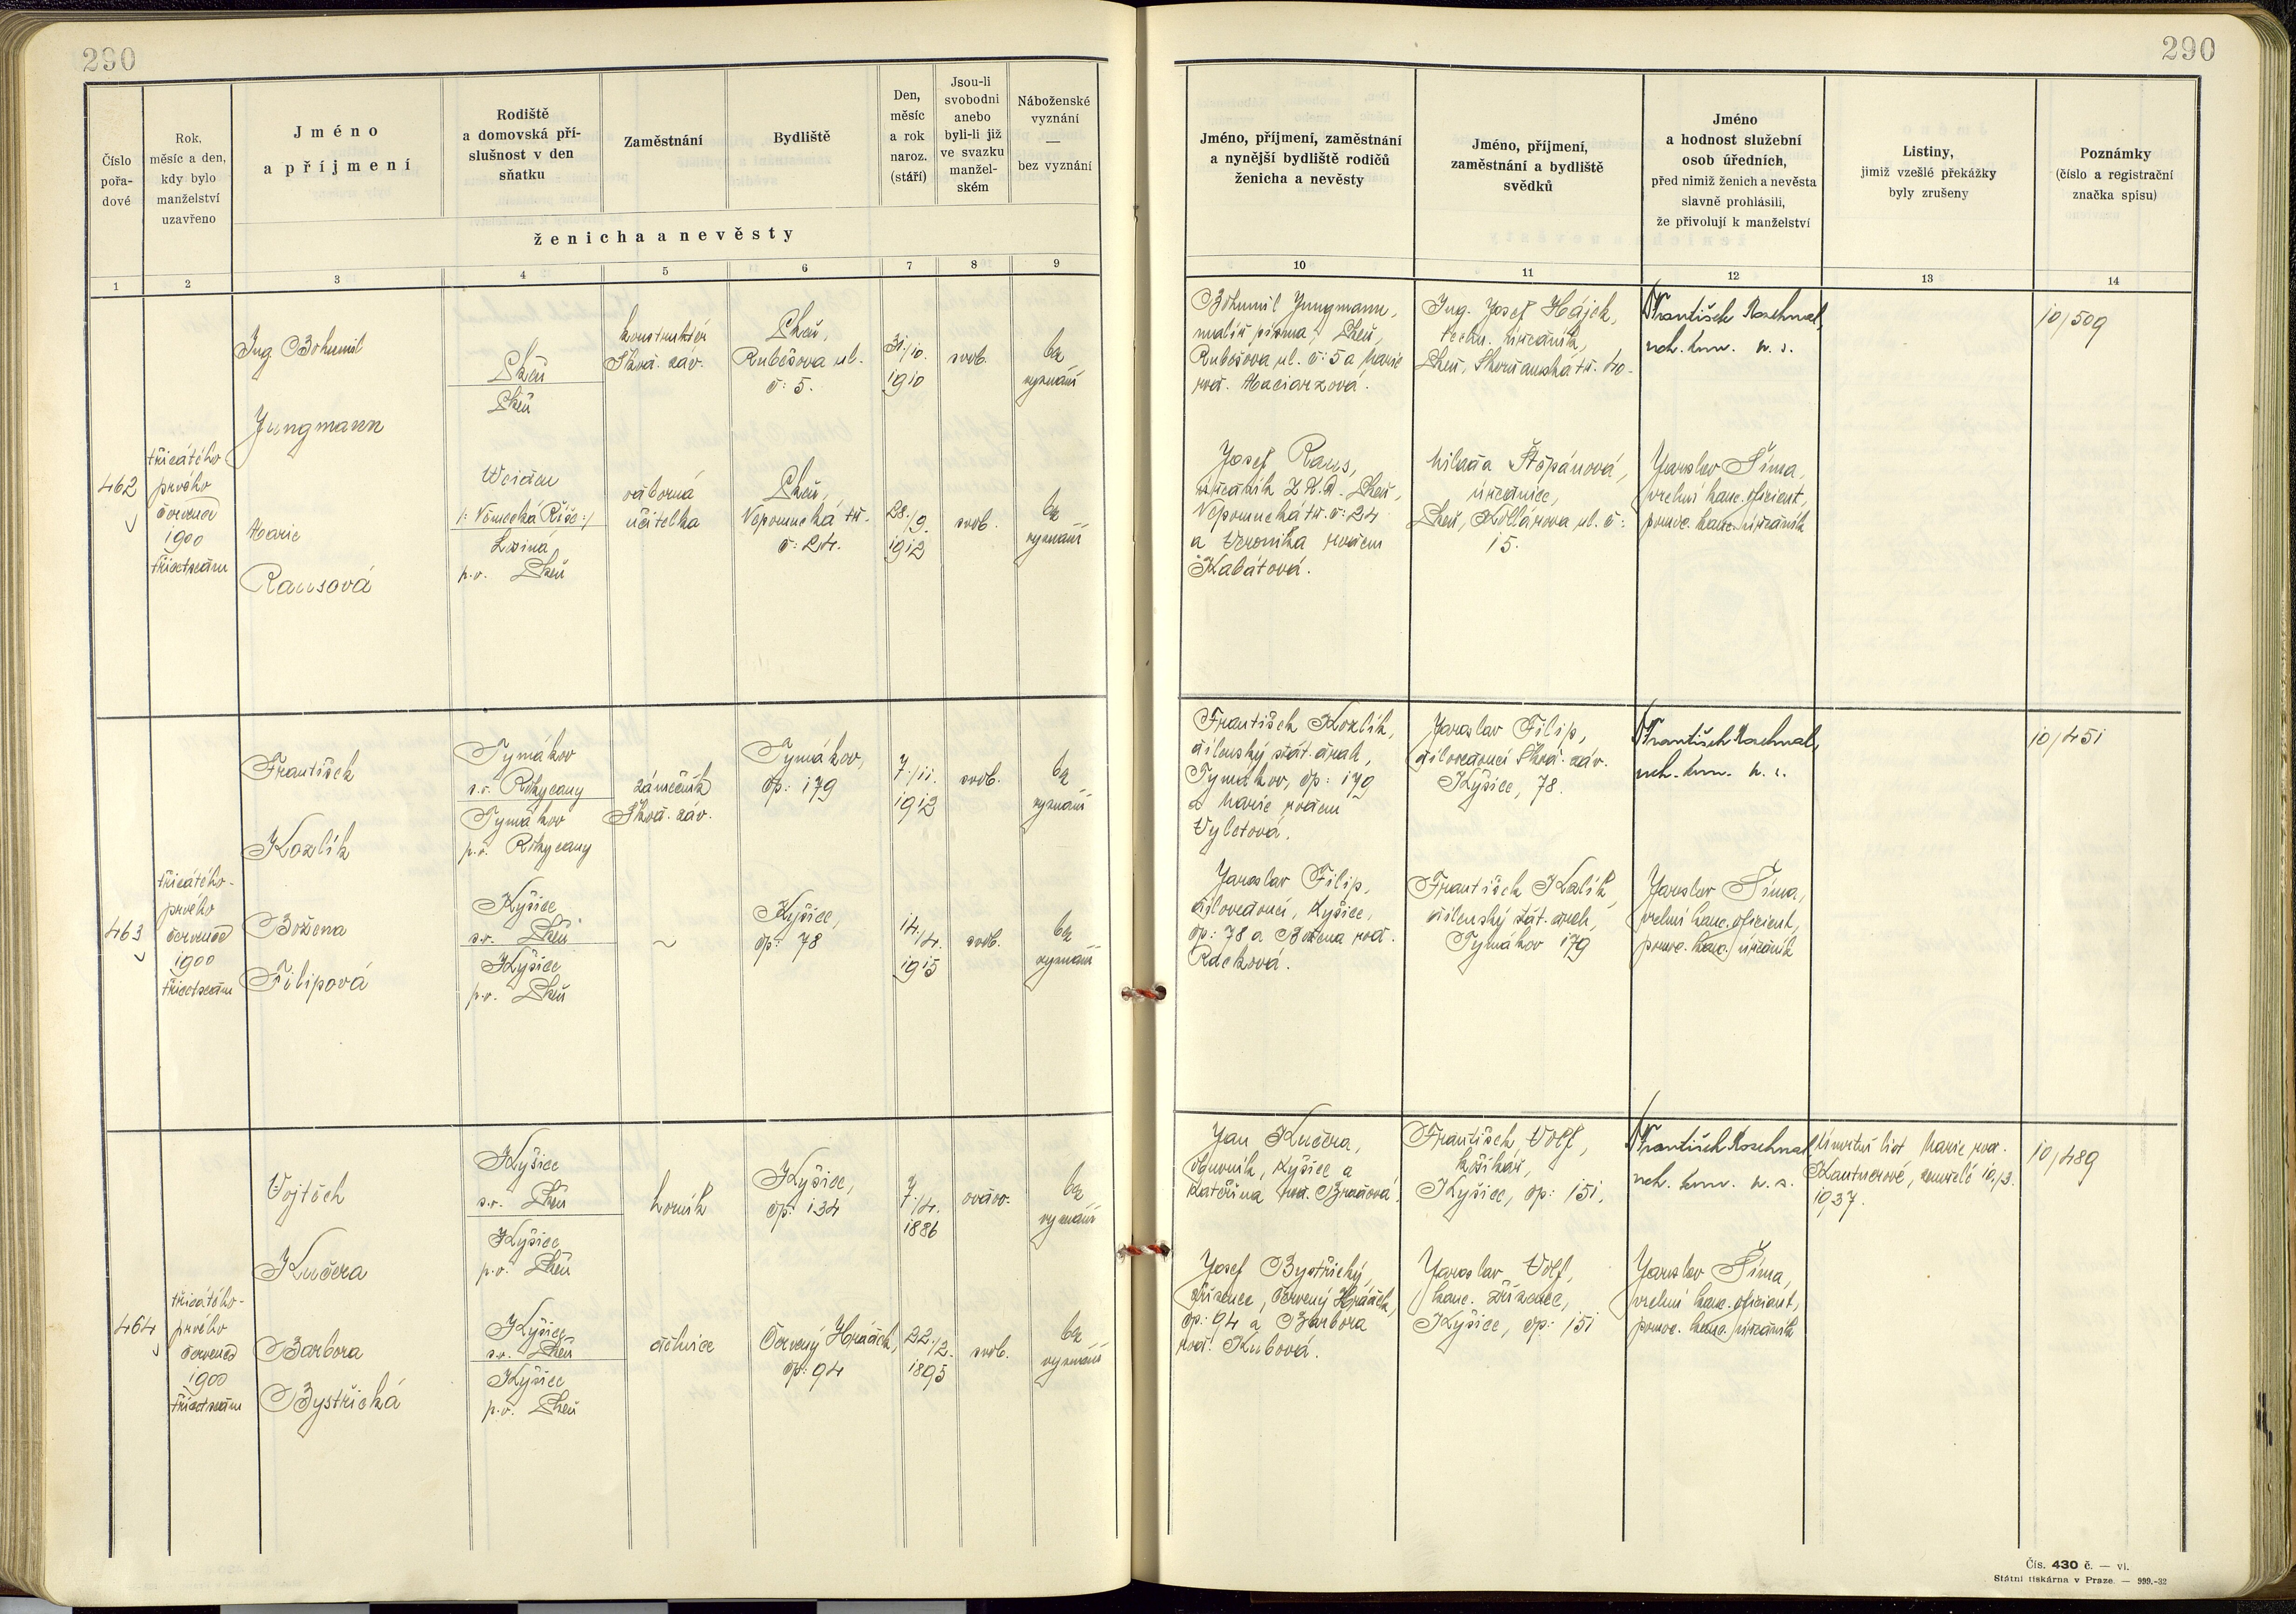 290
290
Číslo
pořa-
dové
Rok,
měsíc a den,
kdy bylo
manželství
uzavřeno
Jméno
a příjmení
Rodiště
a domovská pří-
slušnost v den
sňatku
Zaměstnání
Bydliště
Den,
měsíc
a rok
naroz.
(stáří)
Jsou-li
svobodni
anebo
byli-li již
ve svazku
manžel-
ském
Náboženské
vyznání
—
bez vyznání
ženicha a nevěsty
Jméno, příjmení, zaměstnání
a nynější bydliště rodičů
ženicha a nevěsty
Jméno, příjmení,
zaměstnání a bydliště
svědků
Jméno
a hodnost služební
osob úředních,
před nimiž ženich a nevěsta
slavně prohlásili,
že přivolují k manželství
Listiny,
jimiž vzešlé překážky
byly zrušeny
Poznámky
(číslo a registrační
značka spisu)
1 2 3 4 5 6 7 8 9 10 11 12 13 14
462
třicátého
prvého
července
1900
třicetsedm
Ing. Bohumil
Jungmann
Plzeň
Plzeň
konstruktér
Škod. záv.
Plzeň,
Rubešova ul.
č: 5.
31./10.
1910
svob.
bez
vyznání
Marie
Rausová
Weiden
/: Německá Říše :/
Lozina
p.o. Plzeň
odborná
učitelka
Plzeň,
Nepomucká tř.
č: 24.
28./9.
1912
svob.
bez
vyznání
Bohumil Jungmann,
malíř písma, Plzeň,
Rubešova ul. č: 5 a Marie
rod. Maciarzová.
Josef Raus,
Plzeň,
Nepomucká tř. č: 24
a Veronika rodem
Kabátová.
Ing. Josef Hájek,
techn. úředník,
Plzeň, Skvrňanská tř. 40.
Milada Štěpánová,
úřednice,
Plzeň, Kollárova ul. č:
15.
František
Jaroslav Šíma,
vrchní kanc. oficiant,
pomoc. kanc. úředník
10/509
463
třicátého-
prvého
července
1900
třicetsedm
František
Kozlík
Tymákov
s.o. Rokycany
Tymákov
p.o. Rokycany
zámečník
Škod. záv.
Tymákov,
čp: 179
7./11.
1912
svob.
bez
vyznání
Božena
Filipová
Kyšice
s.o. Plzeň
Kyšice
p.o. Plzeň
~
Kyšice,
čp: 78
14./4.
1915
svob.
bez
vyznání
František Kozlík,
dílenský stát. drah,
Tymákov, čp: 179
a Marie rodem
Vyletová.
Jaroslav Filip,
dílovedoucí, Kyšice,
čp: 78 a Božena rod.
Jaroslav Filip,
dílovedoucí Škod. záv.
Kyšice, 78.
František
dílenský stát. drah,
Tymákov 179
František
Jaroslav Šíma,
vrchní kanc. oficiant,
pomoc. kanc. úředník
10/451
464
třicátého-
prvého
července
1900
třicetsedm
Vojtěch
Kučera
Kyšice
s.o. Plzeň
Kyšice
p.o. Plzeň
horník
Kyšice,
čp: 134
7./4.
1886
ovdov.
bez
vyznání
Barbora
Bystřická
Kyšice
s.o. Plzeň
Kyšice
p.o. Plzeň
dělnice
Červený Hrádek,
čp: 94
22./2.
1895
svob.
bez
vyznání
Jan Kučera,
Kyšice a
Kateřina rod.
Josef Bystřický,
Červený Hrádek,
čp: 94 a Barbora
rod. Kubová.
František Volf,
košíkář,
Kyšice, čp: 151.
Jaroslav Volf,
kanc. zřízenec,
Kyšice, čp: 151
František
Jaroslav Šíma,
vrchní kanc. oficiant,
pomoc. kanc. úředník
Úmrtní list Marie rod.
Kantnerové, zemřelé 10./3.
1937.
10/489
Čís. 430 č. — vl.
Státní tiskárna v Praze. — 999.-32